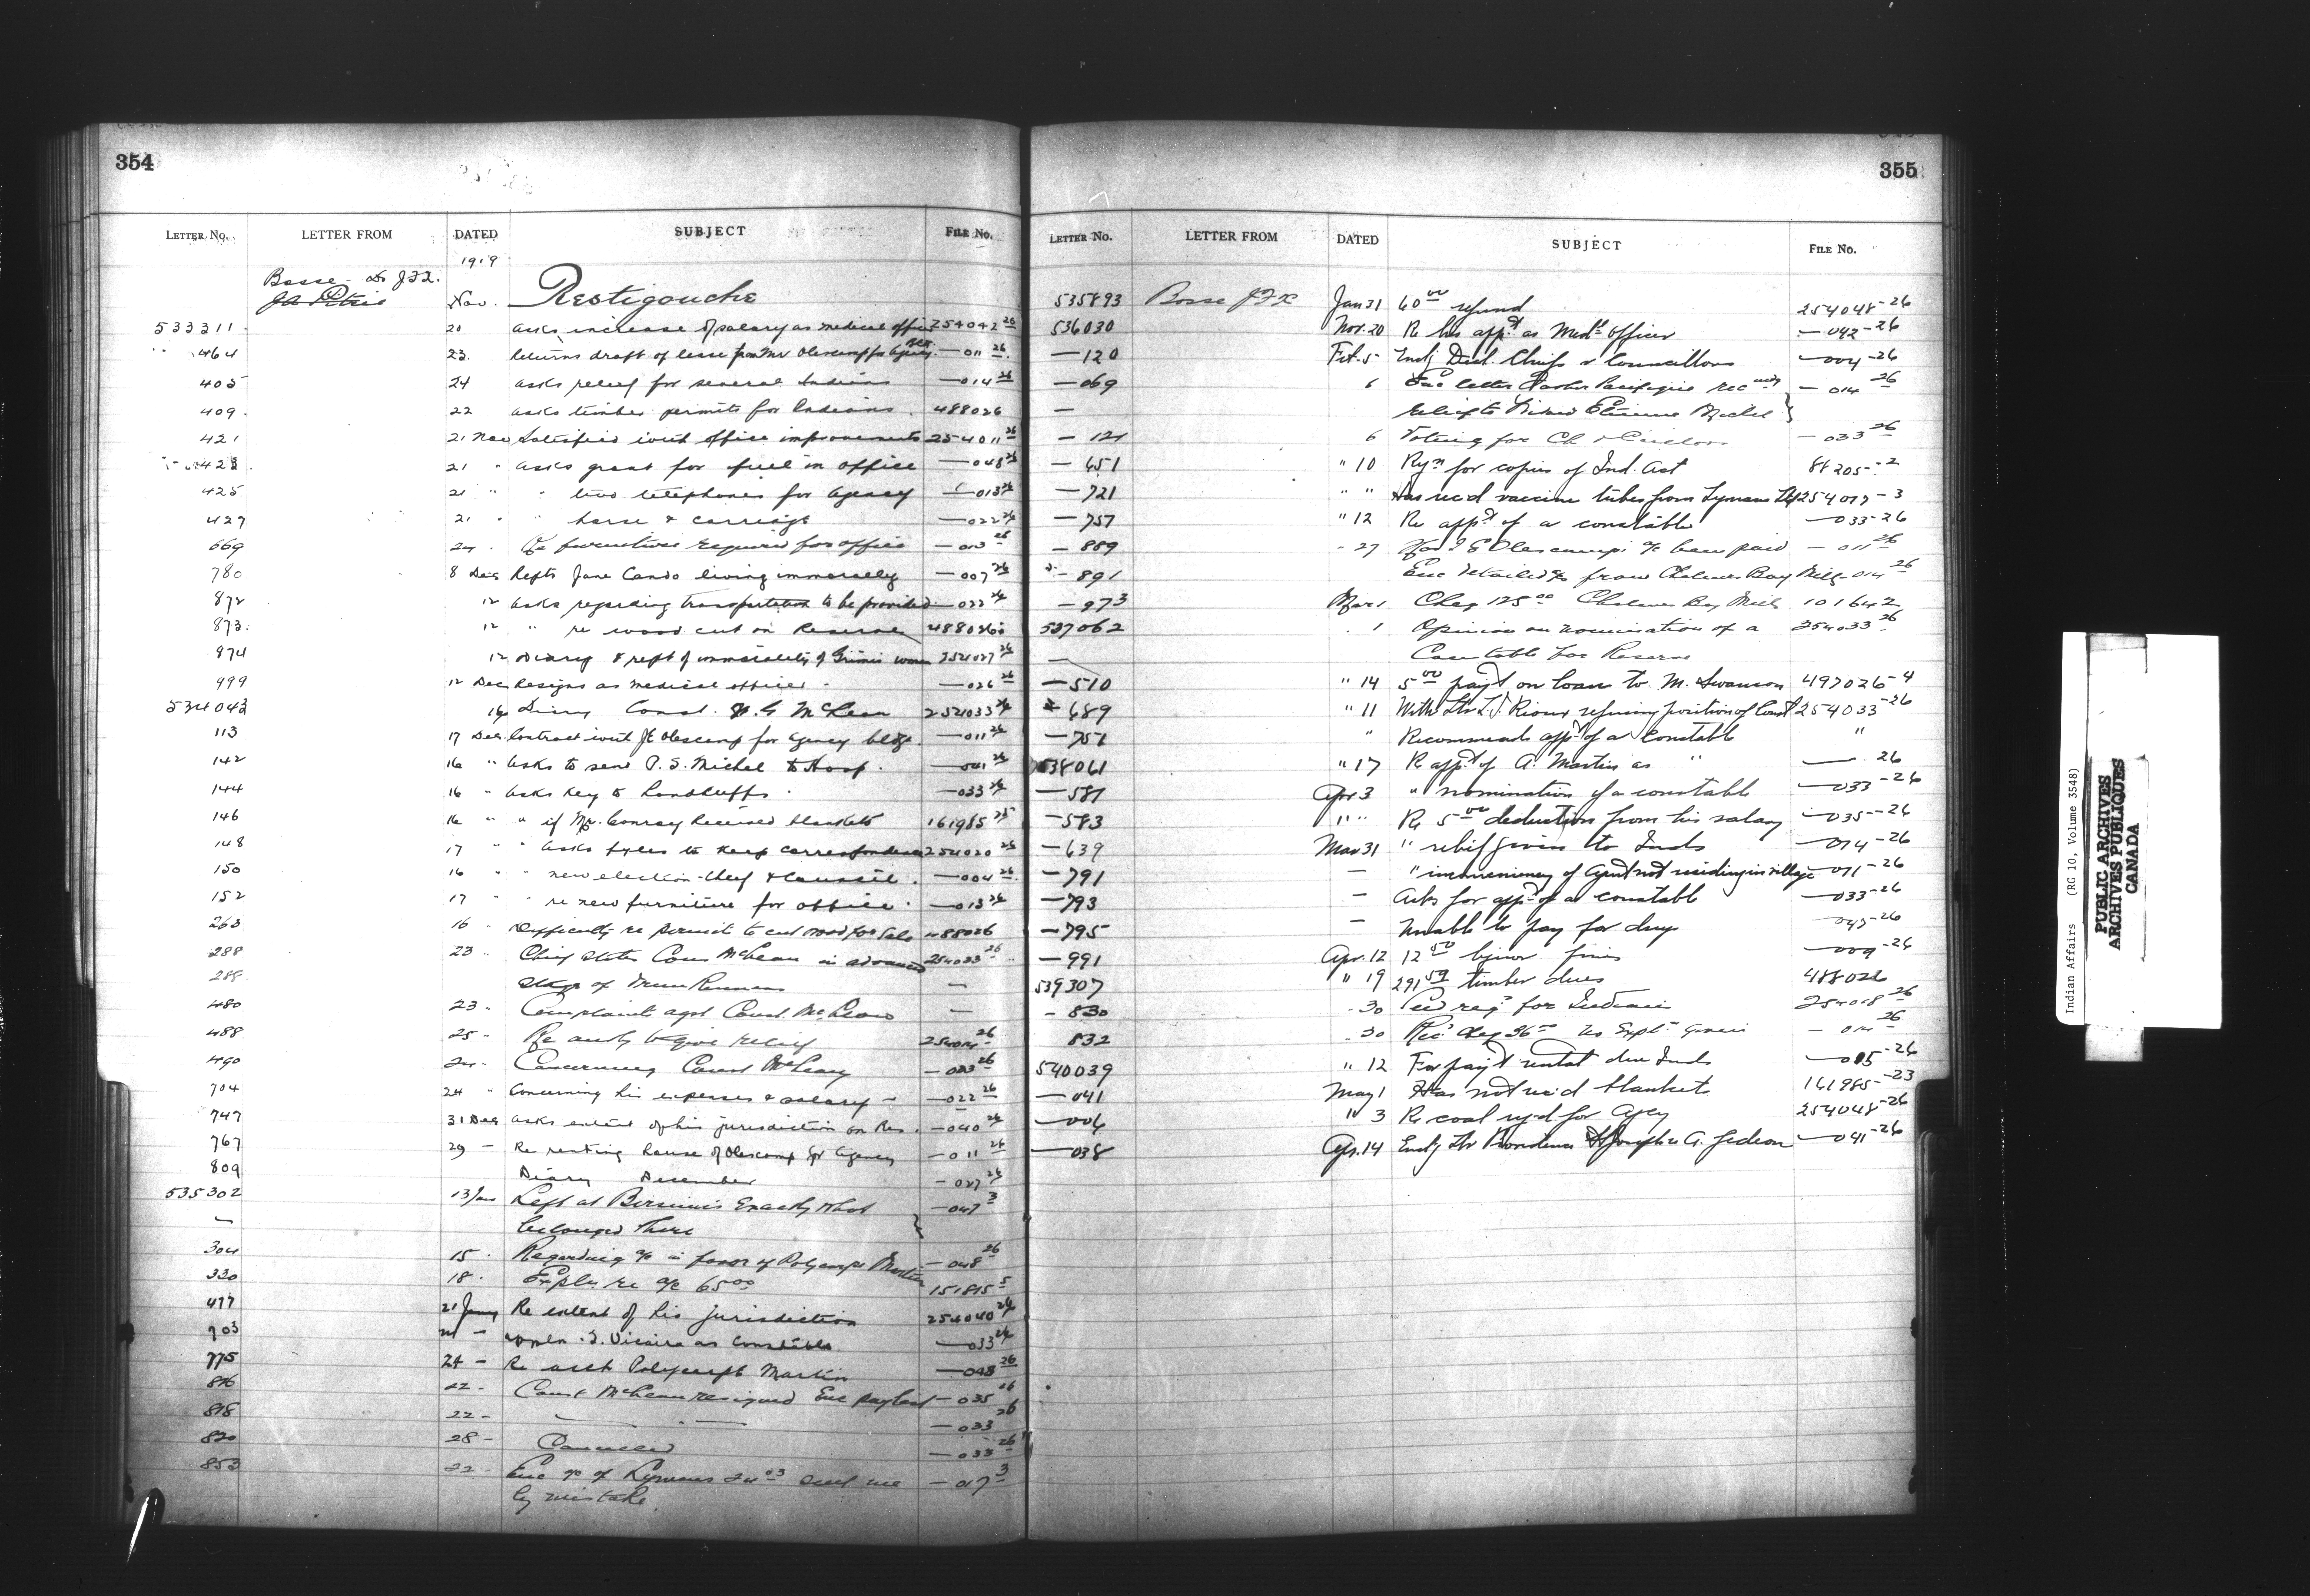 354
LETTER No. LETTER FROM DATED SUBJECT FILE No.
1919
Bosse Dr J.F.X.
Nov. Restigouche
533311 20 asks increase of salary as medical officer 254042-26
464 23 Returns draft of lease from Mr Olescamp for Agency —011-26
405 24 asks relief for several Indians —014-26
409 22 asks timber permits for Indians 488026
421 21 Nov Satisfied with office improvements 254011-26
423 21 " asks grant for fuel in office —048-26
425 21 " " two telephones for Agency —013-26
427 21 " " horse & carriage —022-26
669 24 Re furniture required for office —013-26
780 8 Dec Repts Jane Condo living immorally —007-26
872 12 asks regarding transportation to be provided —022-26
873 12 " re wood cut on Reserve 488026
974 12 Diary & rept of immorality of women 254027-26
999 12 Dec Resigns as medical officer —026-26
534043 16 Diary Const. McLean 254033-26
113 17 Dec Contract with JE Olescamp for Agency bldg. —011-26
142 16 " asks to send P. S. Michel to Hosp. —041-26
144 16 " asks key to handcuffs —033-26
146 16 " " if Mr. Conray Received blankets 161985-25
148 17 " asks files to keep correspondence 254020-26
150 16 " " new election Chief & Council. —004-26
152 17 " " re new furniture for office —013-26
263 16 " Difficulty re permit to cut wood for sale 488026
288 23 " Chief states Cons McLean in advanced 254033-26
289 stage of —
480 23 - Complaint agst Const. McLean —
488 25 - Re auty to give relief 254014-26
490 24 - Concerning Const McLean —033-26
704 24 - Concerning his expenses & salary —022-26
747 31 Dec asks extent of his jurisdiction on Res. —040-26
767 29 - Re renting house of Olescamp for Agency —011-26
809 Diary December —027-26
535302 13 Jan Left at Bersimis exactly what —047-3
— belonged there }
304 15 - Regarding a/c in favor of Polycarpe Martin —048-26
330 18 - Expln re a/c 65.00 151815-5
477 21 Jany Re extent of his jurisdiction 254040-26
703 21 - Vicaire as Constable —033-26
775 24 - Re acct Polycarpe Martin —048-26
816 22 - Const McLean resigned Enc paylist —035-26
818 22 - — " — —033-26
820 28 - Cancelled —033-26
853 22 - Enc a/c of Lymans 24.03 sent me —017-3
by mistake.
355
LETTER No. LETTER FROM DATED SUBJECT FILE No.
535893 Bosse JFX Jan 31 60.00 refund 254048-26
536030 Nov. 20 Re his appt as Medl officer —042-26
—120 Feb. 5 Encl'g Decl. Chiefs & Councillors —004-26
—069 6 Enc letter Father Pacifique recmdg —014-26
— relief to Etienne Michel }
—121 6 Voting for Ch & —033-26
—651 " 10 Reqn for copies of Ind. Act 88205-2
—721 " " Has rec'd vaccine tubes from Lymans Ltd 254017-3
—757 " 12 Re appt of a constable —033-26
—889 - 27 Has J E Olescamp's a/c been paid —011-26
—891 Enc detailed a/c from Chaleur Bay Mills —014-26
—973 Mar 1 Cheq 125.00 Chaleur Bay Mills 101642
537062 1 Opinion on nomination of a 254033-26
— Constable for Reserve
—510 " 14 5.00 pay't on loan to M. Swanson 497026-4
—689 " 11 With Ltr L.J. Rioux refusing position of Const 254033-26
—751 " Recommends appt of a Constable "
538061 " 17 Re appt of A. Martin as " —26
—581 Apr 3 " nomination of a constable —033-26
—583 " " Re 5.00 deduction from his salary —035-26
—639 Mar 31 " relief given to Inds —014-26
—791 — " inconveniency of Agent not residing in village —011-26
—793 — Asks for appt of a constable —033-26
—795 — Unable to pay for drugs —047-26
—991 Apr. 12 12.50 liquor fines —009-26
539307 " 19 291.59 timber dues 488026
—830 - 30 reqn for Indians 254018-26
832 - 30 Rec Cheq 36.00 No Expln given —014-26
540039 " 12 For pay't rental due Inds —015-26
—041 May 1 Has not rec'd blankets 161985-23
—006 " 3 Re coal req'd for Agcy 254048-26
—038 Apr. 14 Encl'g Ltr Providence St Joseph re A. Gedeon —041-26
Indian Affairs (RG 10, Volume 3548)
PUBLIC ARCHIVES
ARCHIVES PUBLIQUES
CANADA